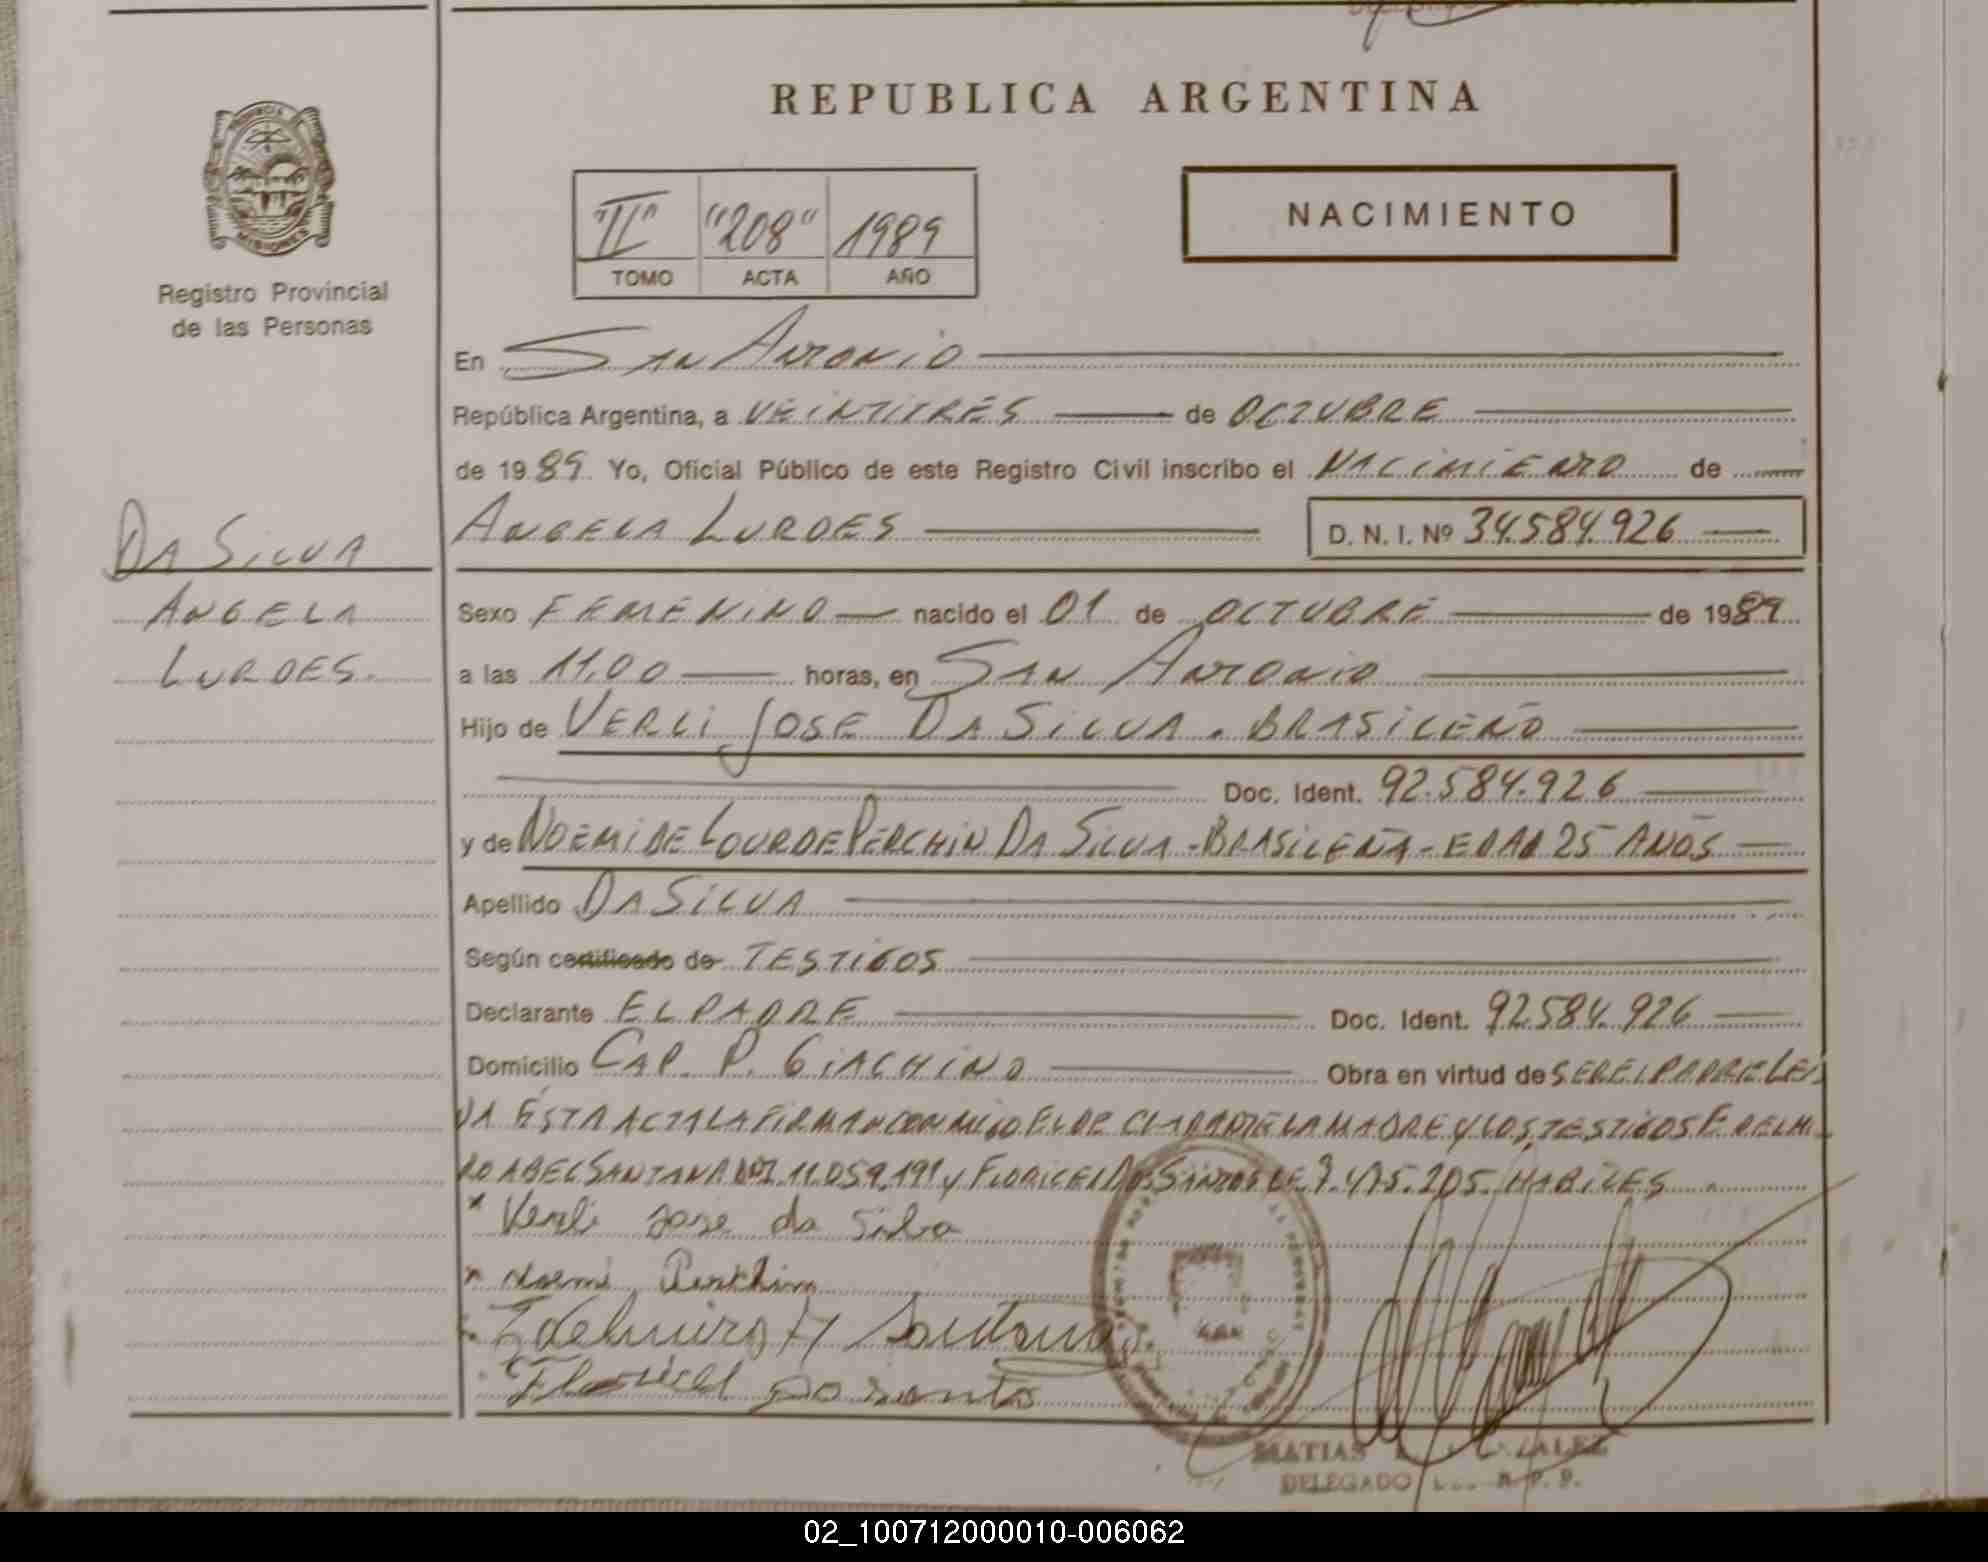 REPUBLICA ARGENTINA
PROVINCIA DE
MISIONES
Registro Provincial
de las Personas
"II" "208" 1989
TOMO ACTA AÑO
NACIMIENTO
En San Antonio
República Argentina, a VEINTITRÉS de OCTUBRE
de 1989 Yo, Oficial Público de este Registro Civil inscribo el NACIMIENTO de
ANGELA LURDES D. N. I. Nº 34.584.926
DA SILVA
ANGELA
LURDES.
Sexo FEMENINO nacido el 01 de OCTUBRE de 1989
a las 11,00 horas, en SAN ANTONIO
Hijo de VERLI JOSE DA SILVA. BRASILEÑO
Doc. Ident. 92.584.926
y de NOEMI DE LOURDE PERCHIN DA SILVA - BRASILEÑA - EDAD 25 AÑOS
Apellido DA SILVA
Según certificado de TESTIGOS
Declarante EL PADRE Doc. Ident. 92.584.926
Domicilio CAP. P. GIACHINO Obra en virtud de SER EL PADRE LEI
DA ÉSTA ACTA LA FIRMAN CONMIGO EL DECLARANTE LA MADRE Y LOS TESTIGOS EDELMI
RO ABEL SANTANA DNI. 11.059.191 y FLORICEL DOS SANTOS 7.475.205. HABILES
* Verli Jose da Silva
* Noemi Perchin
Edelmiro A Santana
Floricel Do Santo
MATIAS
DELEGADO
02_100712000010-006062